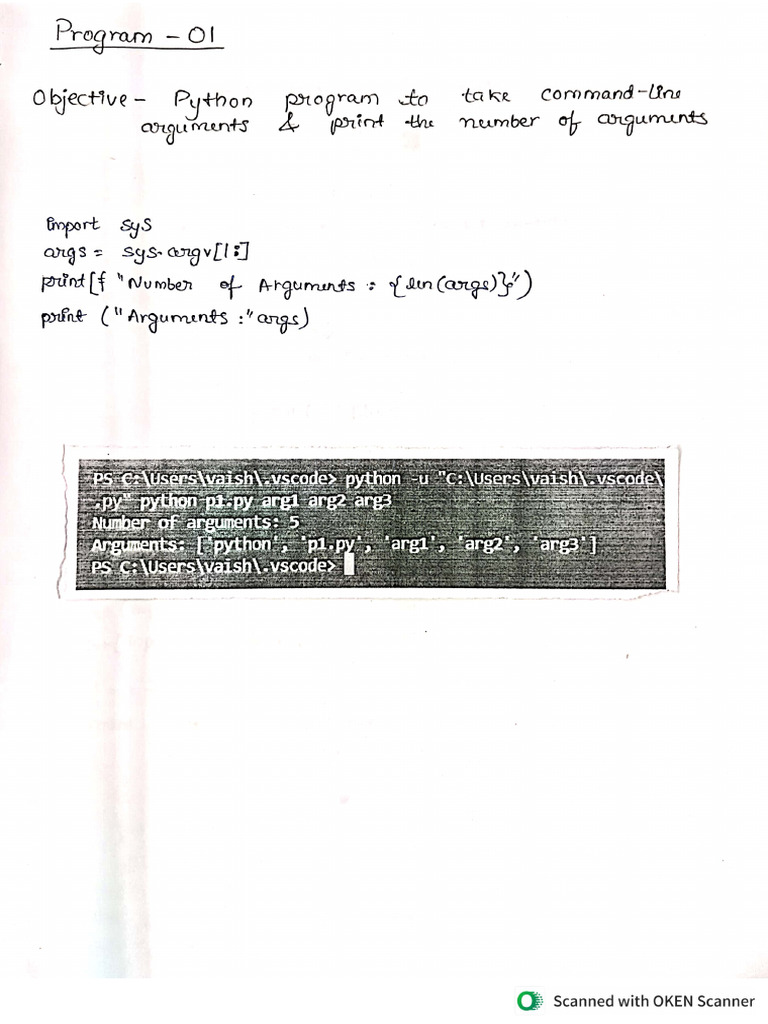 Program - 01
Objective - Python program to take command-line
arguments & print the number of arguments
import sys
args = sys.argv[1:]
print[f "Number of Arguments : {len(args)}")
print ("Arguments :" args)
PS C:\Users\vaish\.vscode> python -u "C:\Users\vaish\.vscode\
.py" python p1.py arg1 arg2 arg3
Number of arguments: 5
Arguments: ['python', 'p1.py', 'arg1', 'arg2', 'arg3']
PS C:\Users\vaish\.vscode>
Scanned with OKEN Scanner